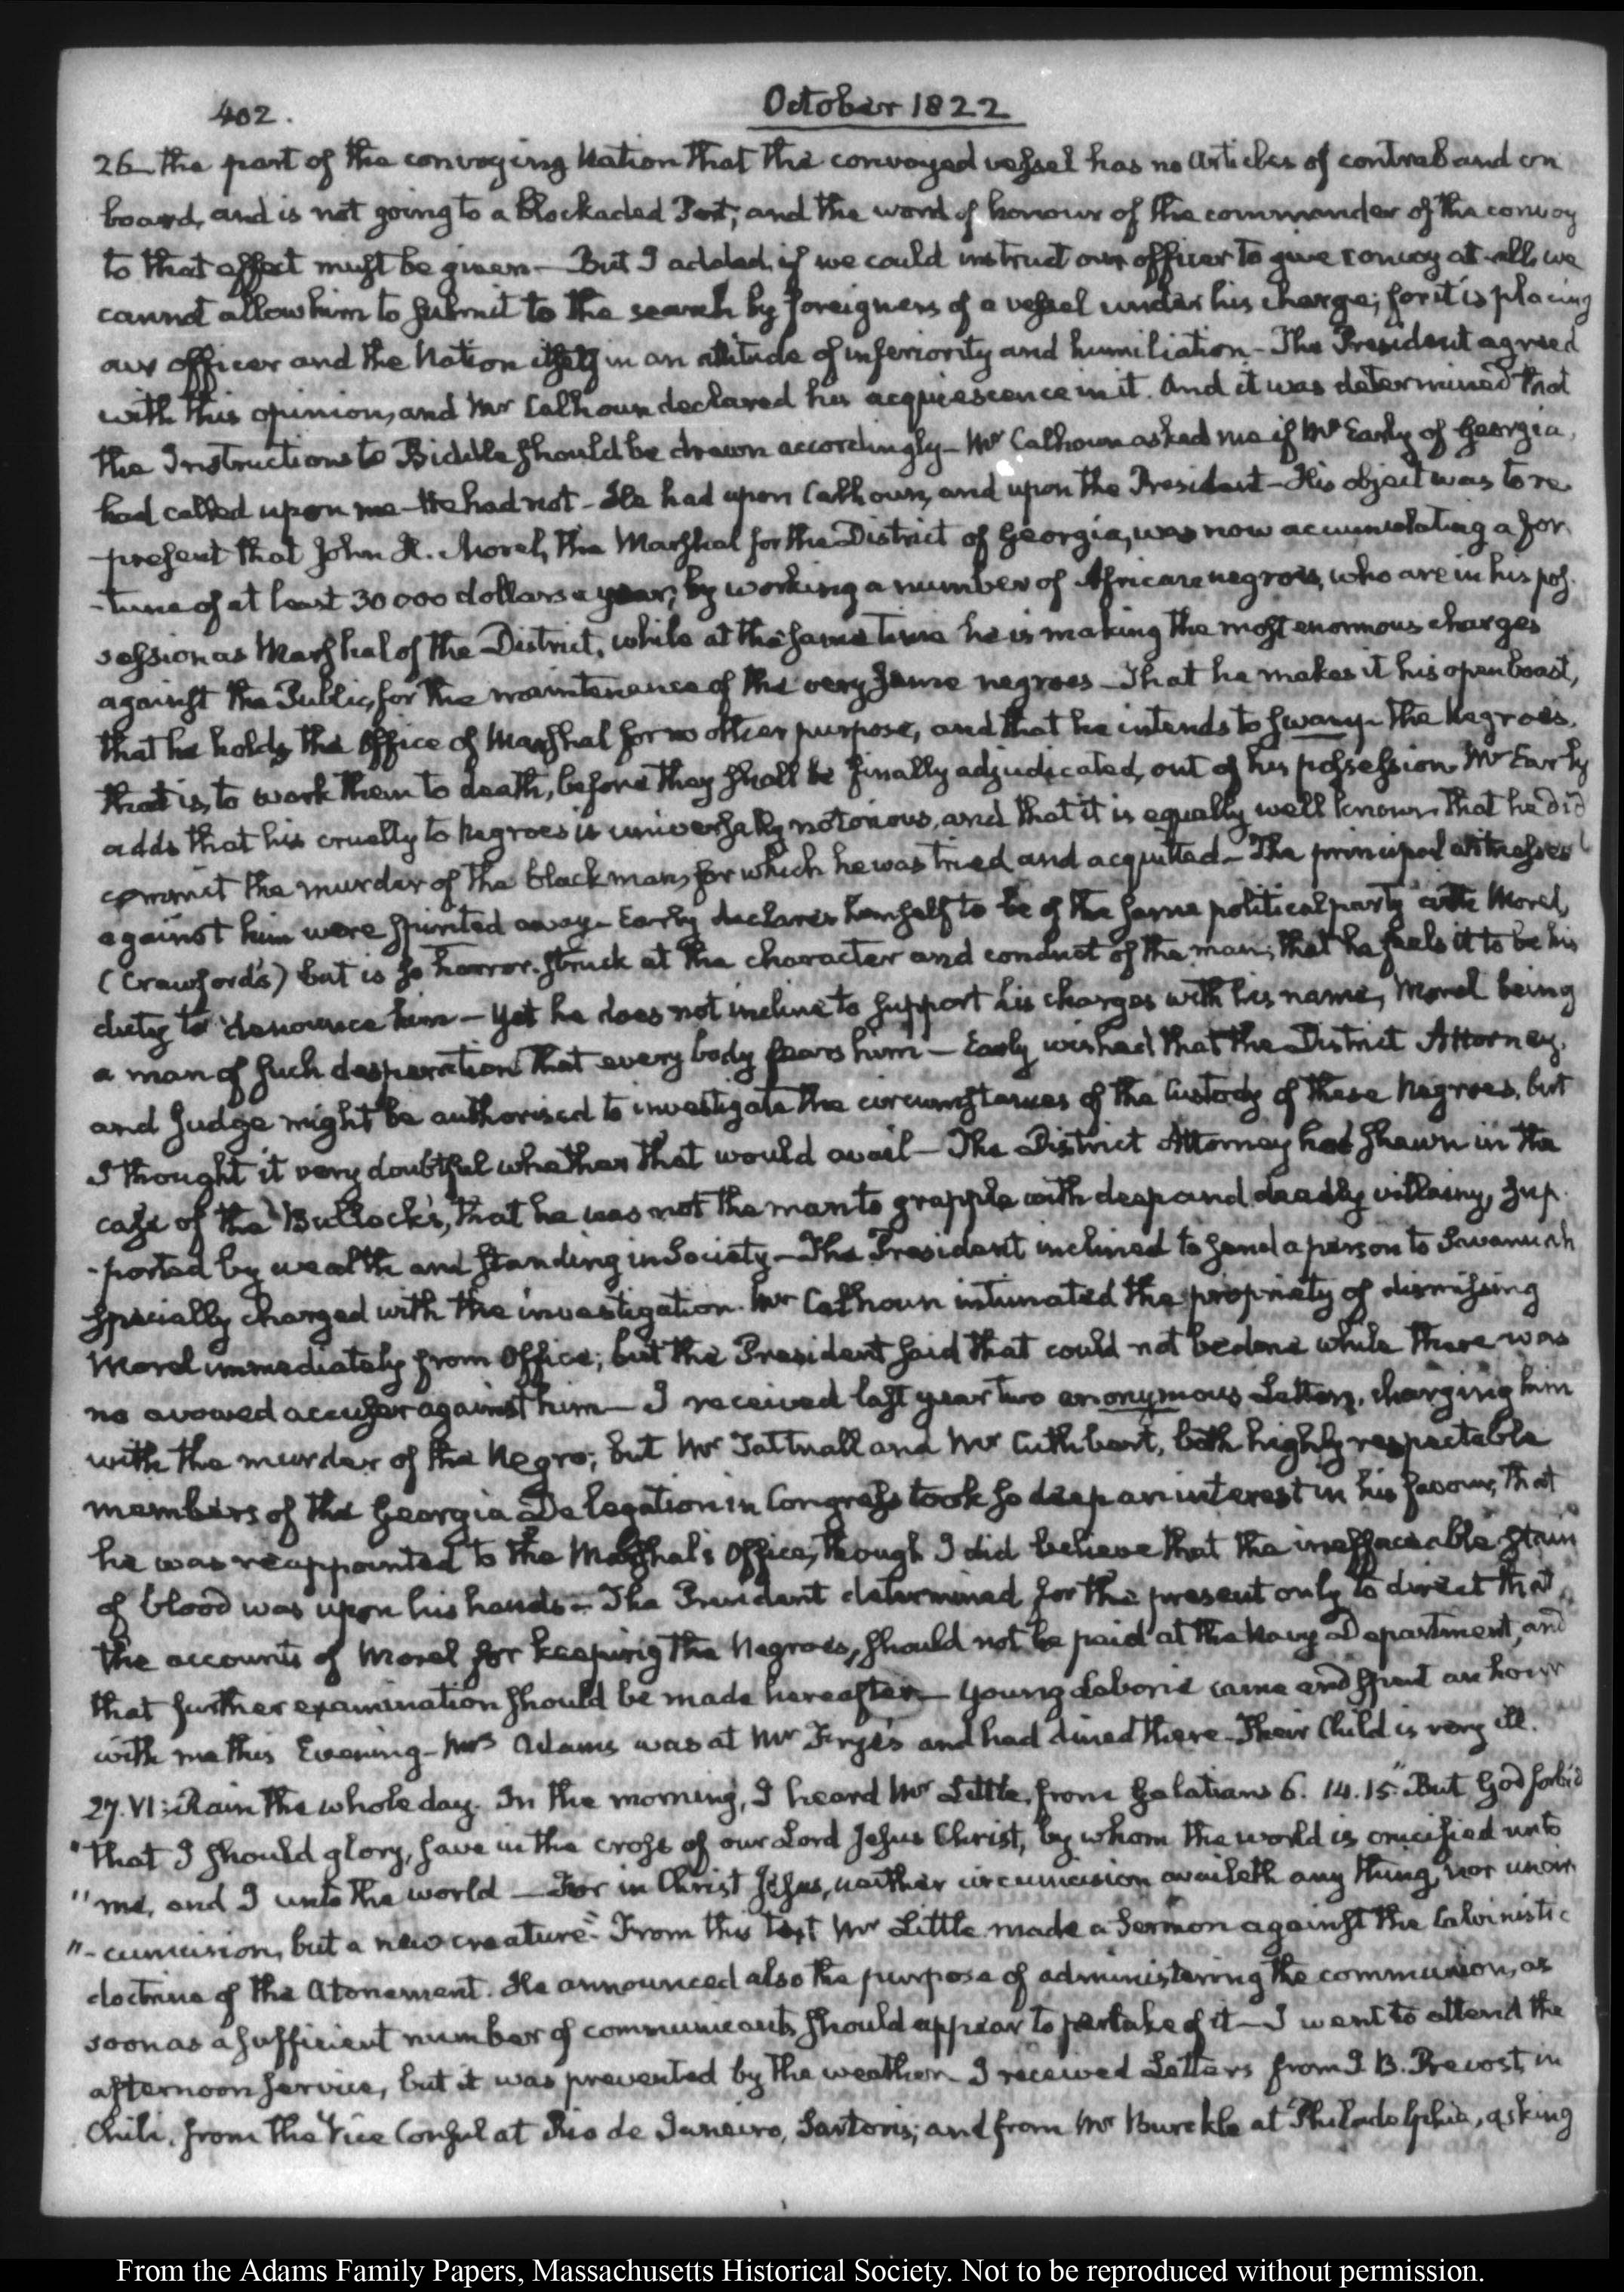 402.
October 1822
26 the part of the convoying Nation that the convoyed vessel has no articles of contraband on
board, and is not going to a blockaded Port; and the word of honour of the commander of the convoy
to that effect must be given — But I added, if we could instruct our officer to give convoy at all, we
cannot allow him to submit to the search by foreigners of a vessel under his charge; for it is placing
our officer and the Nation itself in an attitude of inferiority and humiliation — The President agreed
with this opinion, and Mr Calhoun declared his acquiescence in it. And it was determined that
the Instructions to Biddle should be drawn accordingly — Mr Calhoun asked me if Mr Early of Georgia,
had called upon me — He had not — He had upon Calhoun, and upon the President — His object was to re-
-present that John H. Morel, the Marshal for the District of Georgia, was now accumulating a for-
-tune of at least 30 000 dollars a year, by working a number of African negroes, who are in his pos-
session as Marshal of the District, while at the same time he is making the most enormous charges
against the Public, for the maintenance of the very same negroes — That he makes it his open boast,
that he holds the Office of Marshal for no other purpose, and that he intends to swamp the Negroes,
that is, to work them to death, before they shall be finally adjudicated, out of his possession. Mr Early
adds that his cruelty to Negroes is universally notorious, and that it is equally well known that he did
commit the murder of the black man, for which he was tried and acquitted — The principal witnesses
against him were spirited away — Early declares himself to be of the same political party with Morel,
(Crawford's) but is so horror-struck at the character and conduct of the man, that he feels it to be his
duty to denounce him — Yet he does not incline to support his charges with his name, Morel being
a man of such desperation that every body fears him — Early wished that the District Attorney,
and Judge might be authorised to investigate the circumstances of the Custody of these Negroes, but
I thought it very doubtful whether that would avail — The District Attorney had shewn in the
case of the Bullock's, that he was not the man to grapple with deep and deadly villainy, sup-
-ported by wealth and standing in Society — The President inclined to send a person to Savannah
specially charged with the investigation. Mr Calhoun intimated the propriety of dismissing
Morel immediately from Office; but the President said that could not be done while there was
no avowed accuser against him — I received last year two anonymous Letters, charging him
with the murder of the Negro; but Mr Tattnall and Mr Cuthbert, both highly respectable
members of the Georgia Delegation in Congress took so deep an interest in his favour, that
he was reappointed to the Marshal's Office, though I did believe that the ineffaceable stain
of blood was upon his hands — The President determined for the present only to direct that
the accounts of Morel for keeping the Negroes, should not be paid at the Navy Department, and
that further examination should be made hereafter — Young Laborie came and spent an hour
with me this Evening — Mrs Adams was at Mr Frye's and had dined there — Their Child is very ill.
27. VI: Rain the whole day. In the morning, I heard Mr Little, from Galatians 6. 14. 15. "But God forbid
"that I should glory, save in the cross of our Lord Jesus Christ, by whom the world is crucified unto
"me, and I unto the world — For in Christ Jesus, neither circumcision availeth any thing, nor uncir-
"-cumcision, but a new creature." From this text Mr Little made a Sermon against the Calvinistic
doctrine of the Atonement. He announced also the purpose of administering the communion, as
soon as a sufficient number of communicants should appear to partake of it — I went to attend the
afternoon service, but it was prevented by the weather — I received Letters from J. B. Prevost, in
Chili, from the Vice Consul at Rio de Janeiro, Sartoris; and from Mr Burekle at Philadelphia, asking
From the Adams Family Papers, Massachusetts Historical Society. Not to be reproduced without permission.